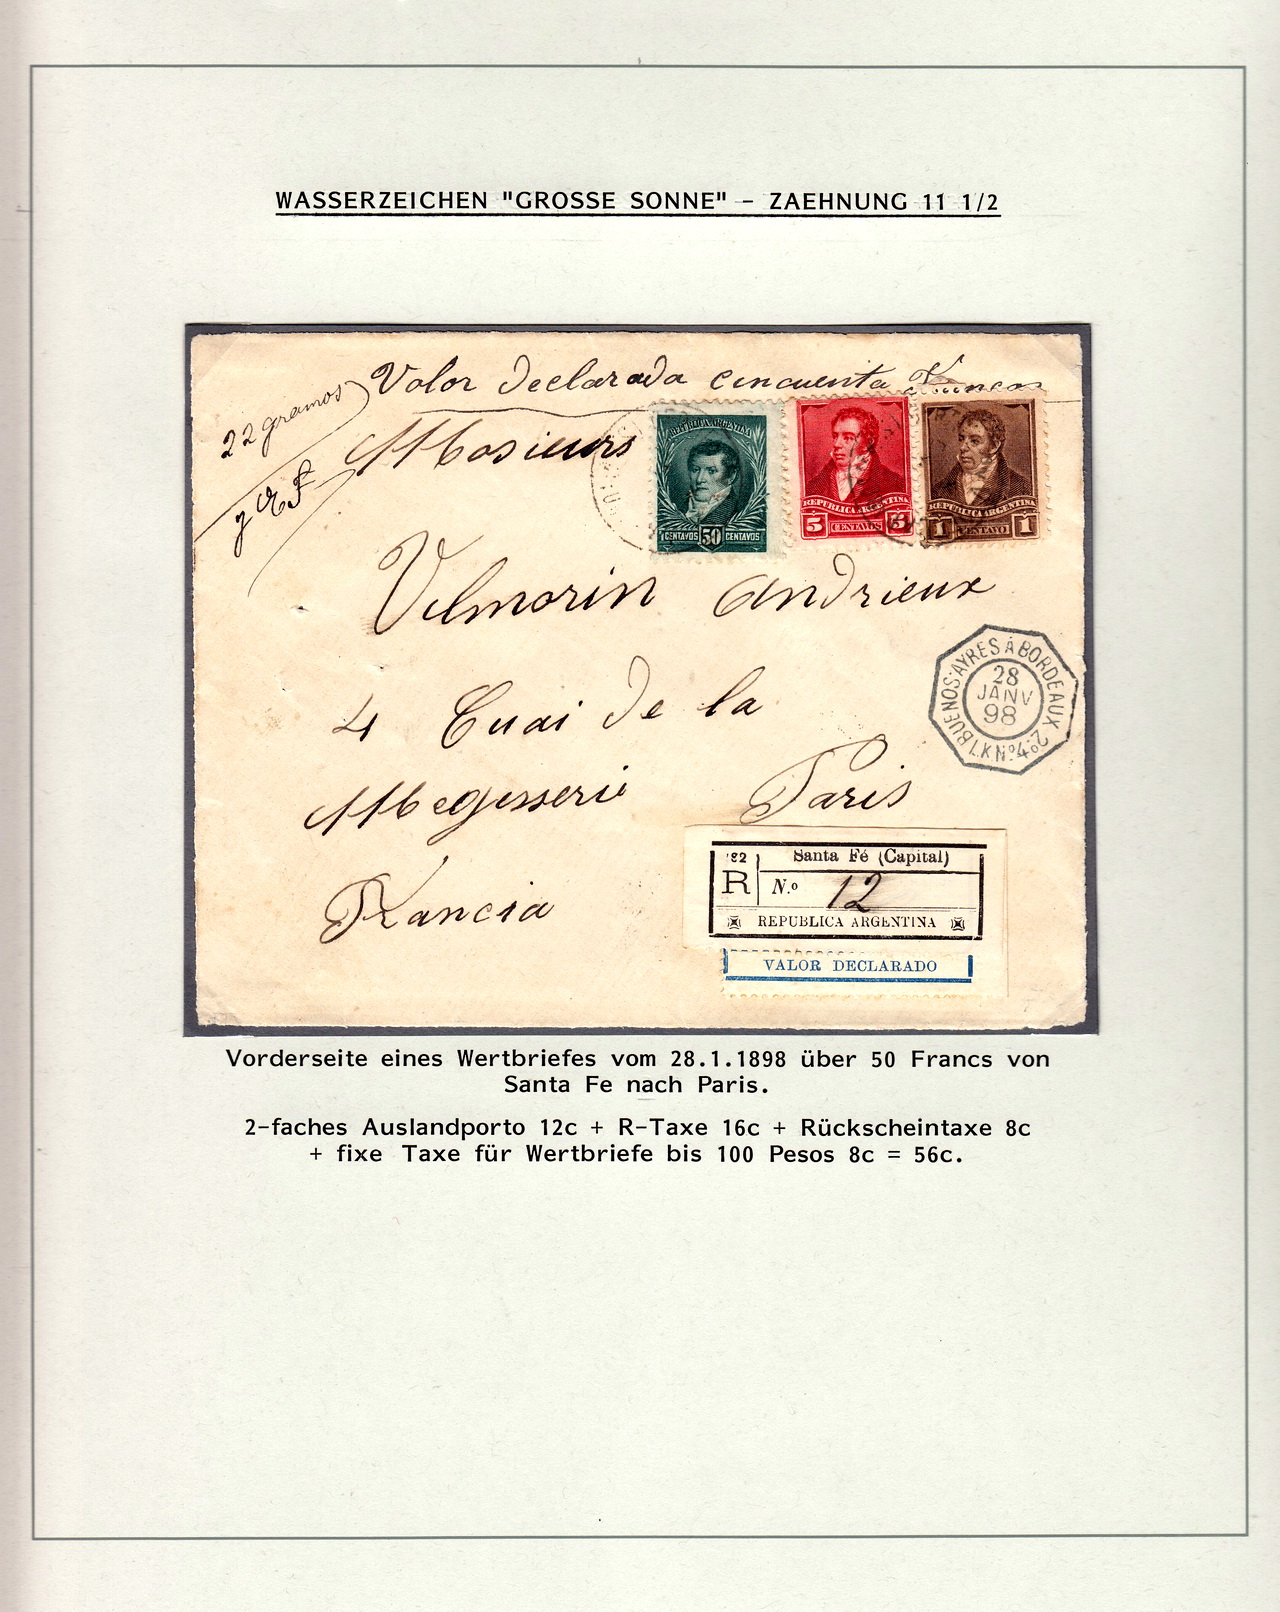 WASSERZEICHEN "GROSSE SONNE" - ZAEHNUNG 11 1/2
Valor Declarada cincuenta Francos
22 gramos
Mosieurs
REPUBLICA ARGENTINA
CENTAVOS 50 CENTAVOS
REPUBLICA ARGENTINA
5 CENTAVOS 5
REPUBLICA ARGENTINA
1 CENTAVO 1
Vilmorin Andrieux
4 Cuai de la
BUENOS-AYRES À BORDEAUX 2º
28
JANV
98
LK Nº4
Megisserie Paris
Francia
'82 Santa Fé (Capital)
R N.º 12
REPUBLICA ARGENTINA
VALOR DECLARADO
Vorderseite eines Wertbriefes vom 28.1.1898 über 50 Francs von
Santa Fe nach Paris.
2-faches Auslandporto 12c + R-Taxe 16c + Rückscheintaxe 8c
+ fixe Taxe für Wertbriefe bis 100 Pesos 8c = 56c.